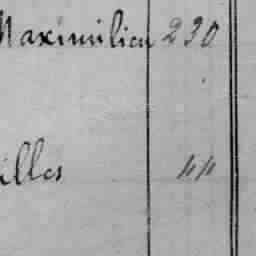 Maximilien 230
illes ""